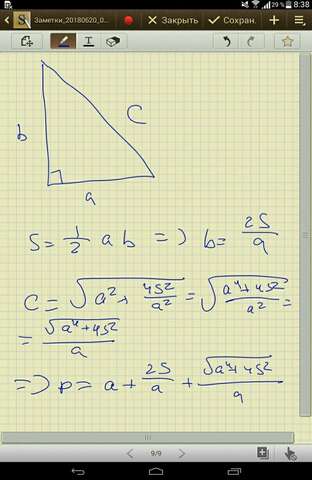 29 % 8:38
Заметки_20180620_0... Закрыть Сохран.
b
C
a
S = 1/2 a b => b = 2S/a
C = √(a² + 4S²/a²) = √((a⁴+4S²)/a²) =
= √(a⁴+4S²)/a
=> p = a + 2S/a + √(a⁴+4S²)/a
9/9